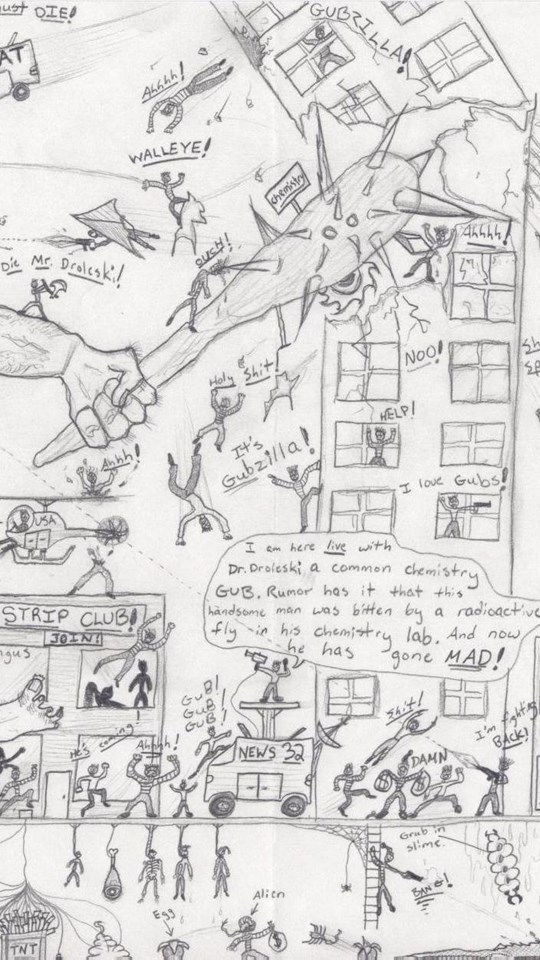 must DIE!
GUBZILLA!
AT
Ahhhh!
WALLEYE!
Chemistry
OUCH!
Ahhhh!
Die Mr. Droleski!
NOO!
Holy Shit!
HELP!
It's
Gubzilla!
Ahhh!
I love Gubs!
USA
I am here live with
Dr. Droleski a common chemistry
GUB. Rumor has it that this
handsome man was bitten by a radioactive
fly in his chemistry lab. And now
he has gone MAD!
STRIP CLUB!
JOIN!
ngus
GUB!
GUB!
GUB!
Shit!
I'm fighting
BACK!
He's coming!
Ahhhh!
NEWS 32
DAMN
Grub in
slime.
BANG!
Alien
Egg
TNT